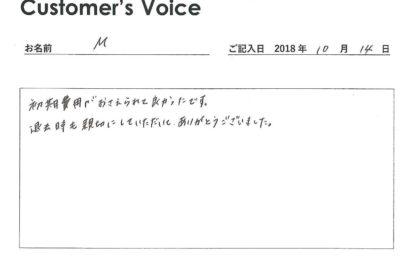 Customer's Voice
お名前 M ご記入日 2018年 10 月 14 日
初期費用がおさえられて良かったです。
退去時も親切にしていただいて、ありがとうございました。